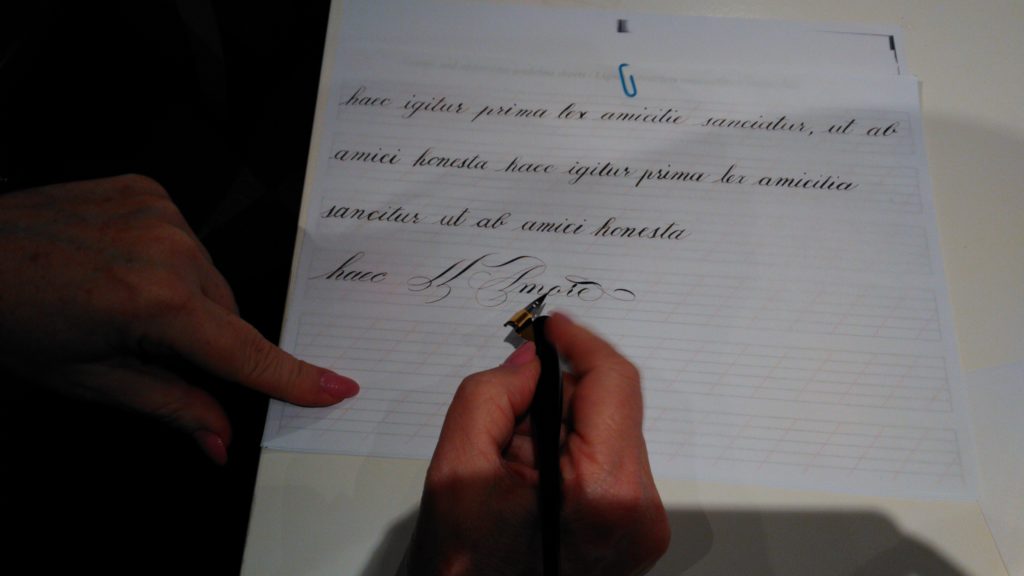 haec igitur prima lex amicitie sanciatur, ut ab
amici honesta haec igitur prima lex amicitia
sancitur ut ab amici honesta
haec Amore